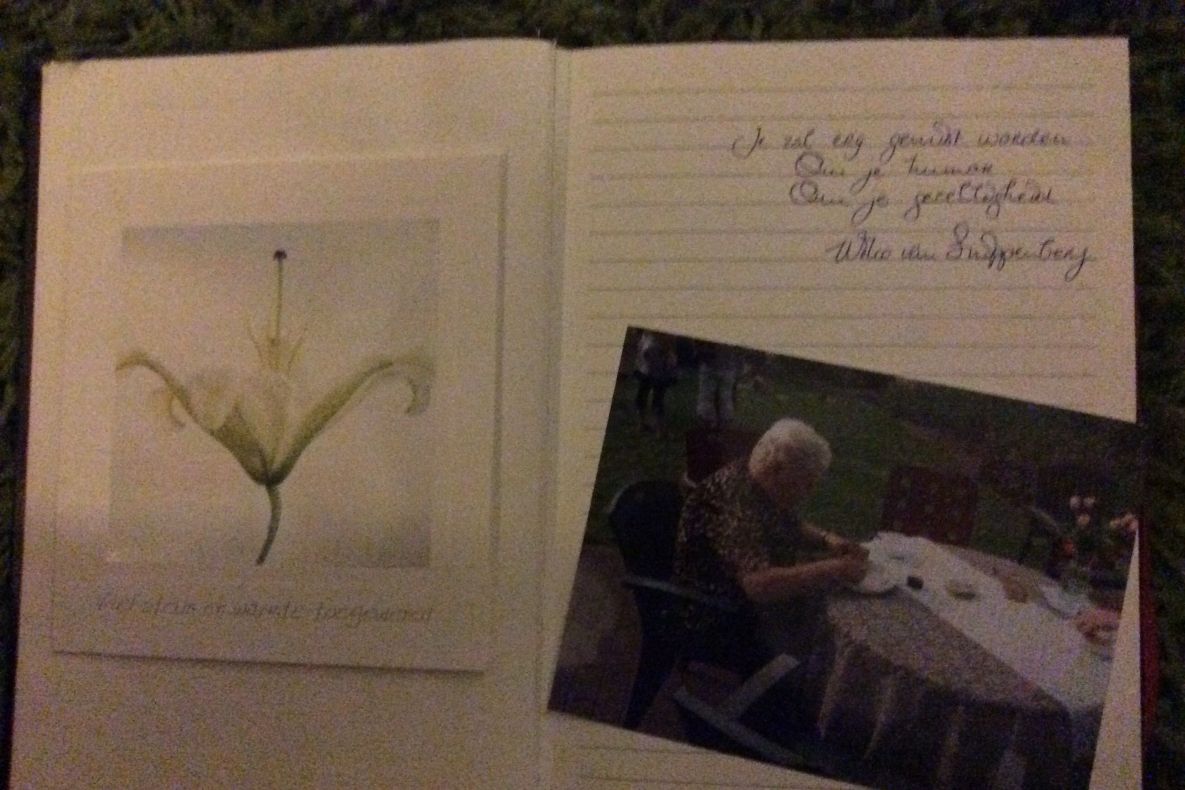 veel steun en warmte toegewenst
Je zal erg gemist worden
Om je humor
Om je gezelligheid
Wilco van